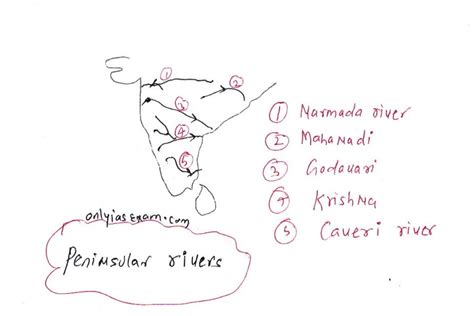 1
2
3
4
5
1 Narmada river
2 Mahanadi
3 Godavari
4 Krishna
5 Caveri river
onlyiasexam.com
Peninsular rivers